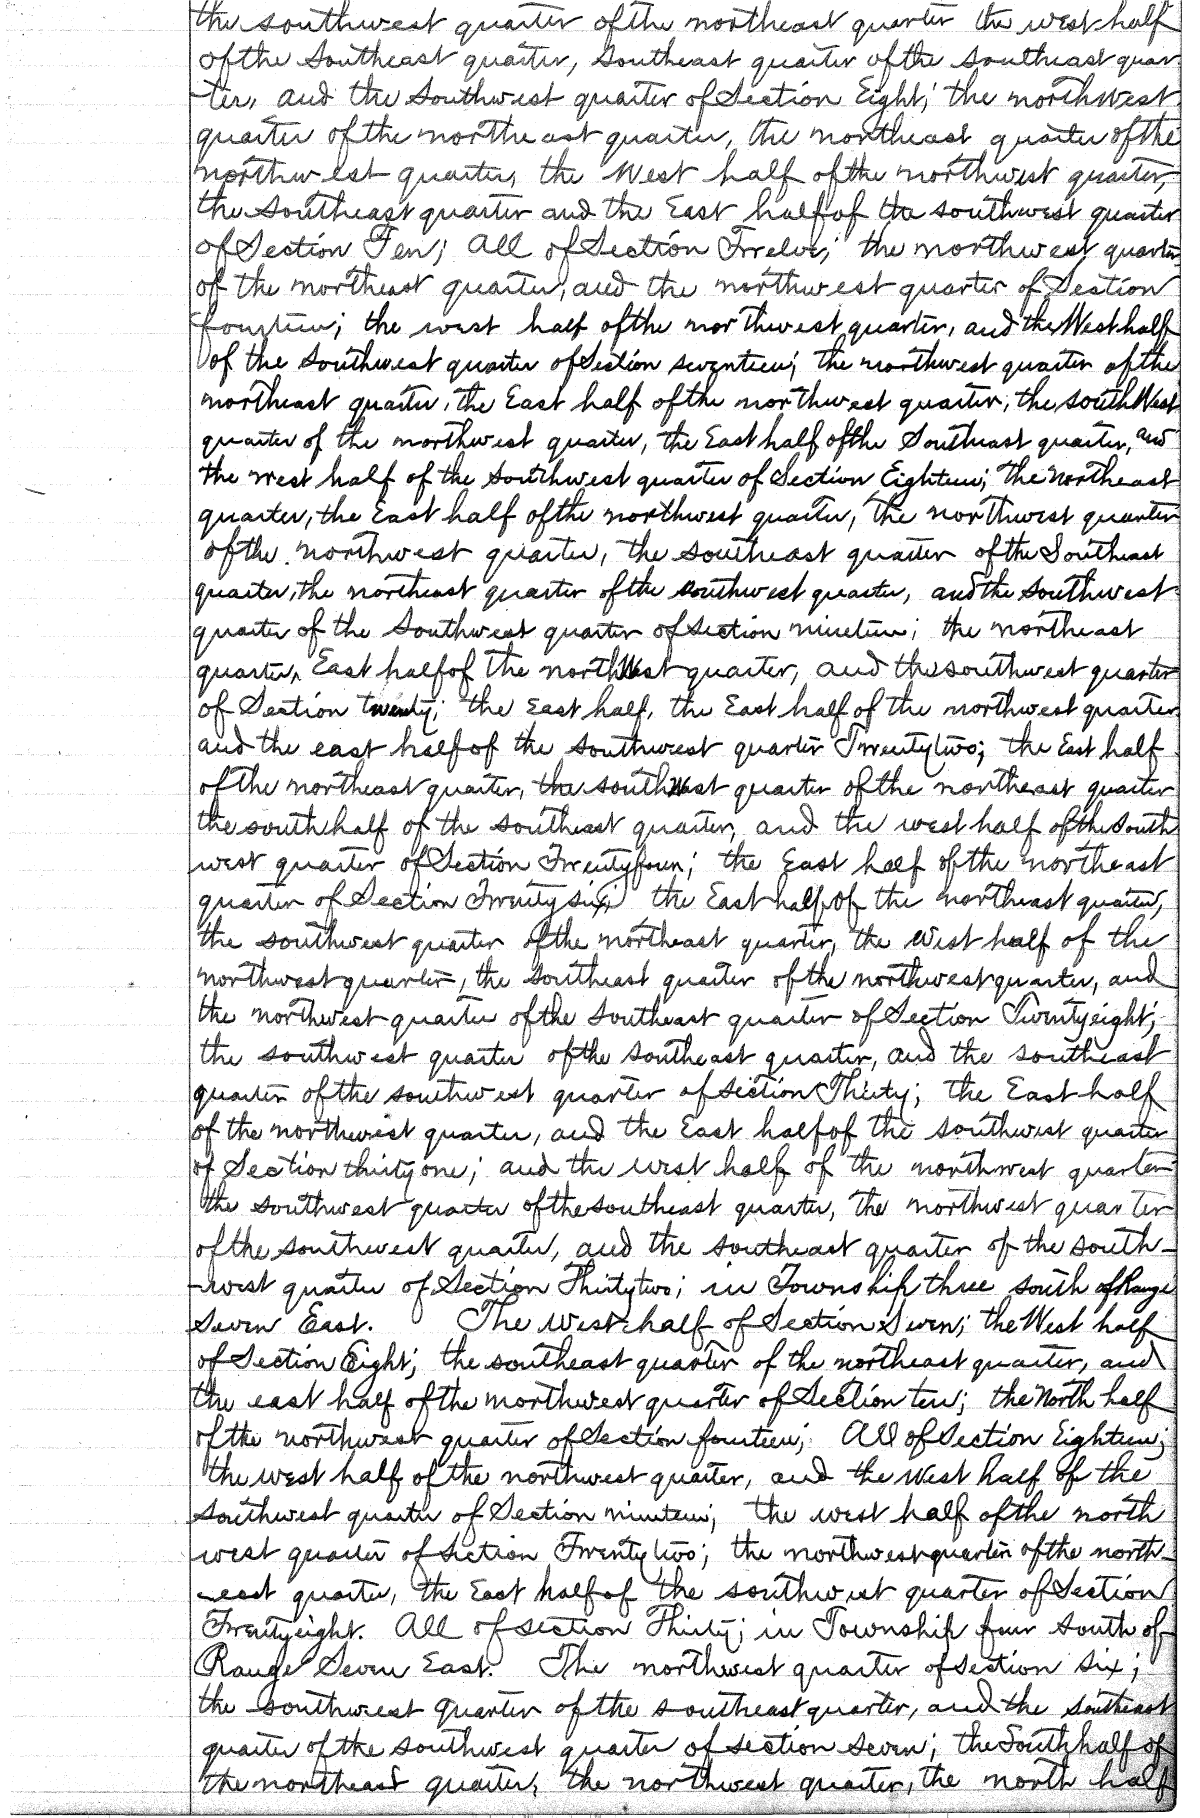 the southwest quarter of the northeast quarter the west half
of the Southeast quarter, Southeast quarter of the Southeast quar
-ter, and the Southwest quarter of Section Eight; the northwest
quarter of the northeast quarter, the northeast quarter of the
northwest quarter, the West half of the northwest quarter,
the Southeast quarter and the East half of the southwest quarter
of Section Ten; All of Section Twelve; the northwest quarter
of the northeast quarter, and the northwest quarter of Section
fourteen; the west half of the northwest quarter, and the West half
of the Southwest quarter of Section seventeen; the northwest quarter of the
northeast quarter, the East half of the northwest quarter, the southWest
quarter of the northwest quarter, the East half of the Southeast quarter, and
the west half of the Southwest quarter of Section Eighteen; the Northeast
quarter, the East half of the northwest quarter, the northwest quarter
of the northwest quarter, the southeast quarter of the Southeast
quarter, the northeast quarter of the southwest quarter, and the southwest
quarter of the Southwest quarter of Section nineteen; the northeast
quarter, East half of the northWest quarter, and the southwest quarter
of Section twenty; the East half, the East half of the northwest quarter
and the east half of the southwest quarter Twenty two; the East half
of the northeast quarter, the southWest quarter of the northeast quarter
the south half of the southeast quarter, and the west half of the South
west quarter of Section Twenty four; the East half of the northeast
quarter of Section Twenty six; the East half of the northeast quarter,
the southwest quarter of the northeast quarter, the West half of the
northwest quarter, the southeast quarter of the northwest quarter, and
the northwest quarter of the southeast quarter of Section Twenty eight;
the southwest quarter of the southeast quarter, and the southeast
quarter of the southwest quarter of section Thirty; the East half
of the northwest quarter, and the East half of the southwest quarter
of Section thirty one; and the west half of the northwest quarter
the southwest quarter of the southeast quarter, the northwest quarter
of the southwest quarter, and the southeast quarter of the south-
-west quarter of Section Thirty two; in Township three south of Range
Seven East. The west half of Section Seven; the West half
of Section Eight; the southeast quarter of the northeast quarter, and
the east half of the northwest quarter of Section ten; the North half
of the northwest quarter of Section fourteen; All of Section Eighteen;
the west half of the northwest quarter, and the West half of the
southwest quarter of Section nineteen; the west half of the north
west quarter of Section Twenty two; the northwest quarter of the north-
-east quarter, the East half of the southwest quarter of Section
Twenty eight. All of section Thirty; in Township four South of
Range Seven East. The northwest quarter of section six;
the southwest quarter of the southeast quarter, and the southeast
quarter of the southwest quarter of section seven; the South half of
the northeast quarter, the northwest quarter, the north half